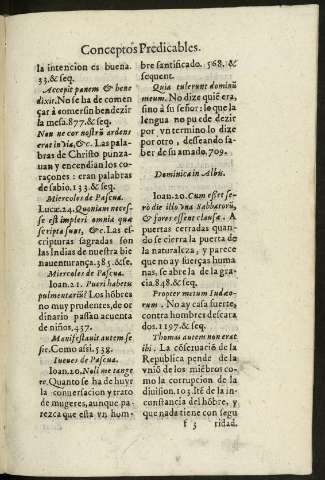 Conceptos Predicables.
la intencion es buena.
33.& seq.
Accepit panem & bene
dixit. No se ha de comen
çar à comer sin bendezir
la mesa. 877.& seq.
Non ne cor nostrũ ardens
erat in via,&c. Las pala-
bras de Christo punza-
uan y encendian los co-
raçones : eran palabras
de sabio. 133.& seq.
Miercoles de Pascua.
Lucæ.24. Quoniam neces-
se est impleri omnia quæ
scripta sunt, &c. Las es-
cripturas sagradas son
las Indias de nuestra bie
nauenturança. 385.& se.
Miercoles de Pascua.
Ioan.21. Pueri habetis
pulmentariũ? Los hõbres
no muy prudentes, de or
dinario passan acuenta
de niños. 437.
Manifestauit autem se
se. Como assi. 538.
Iueues de Pascua.
Ioan.20. Noli me tange
re. Quanto se ha de huyr
la conuersacion y trato
de mugeres, aunque pa-
rezca que esta vn hom-
bre santificado. 568. &
sequent.
Quia tulerunt dominũ
meum. No dize quiẽ era,
sino à su señor : le que la
lengua no puede dezir
por vn termino lo dize
por otro, desseando sa-
ber de su amado. 709.
Dominica in Albis.
Ioan.20. Cum esset se-
rò die illo vna Sabbatorũ,
& fores essent clausæ. A
puertas cerradas quan-
do se cierra la puerta de
la naturaleza, y parece
que no ay fuerças huma
nas, se abre la de la gra-
cia. 848.& seq.
Propter metum Iudæo-
rum. No ay casa fuerte,
contra hombres desca ra
dos. 1197.& seq.
Thomas autem non erat
ibi. La cõseruaciõ de la
Republica pende de la
vniõ de los miẽbros co-
mo la corrupcion de la
diuision. 103. Itẽ de la in-
constancia del hõbre, y
que nada tiene con segu
f 3 ridad.